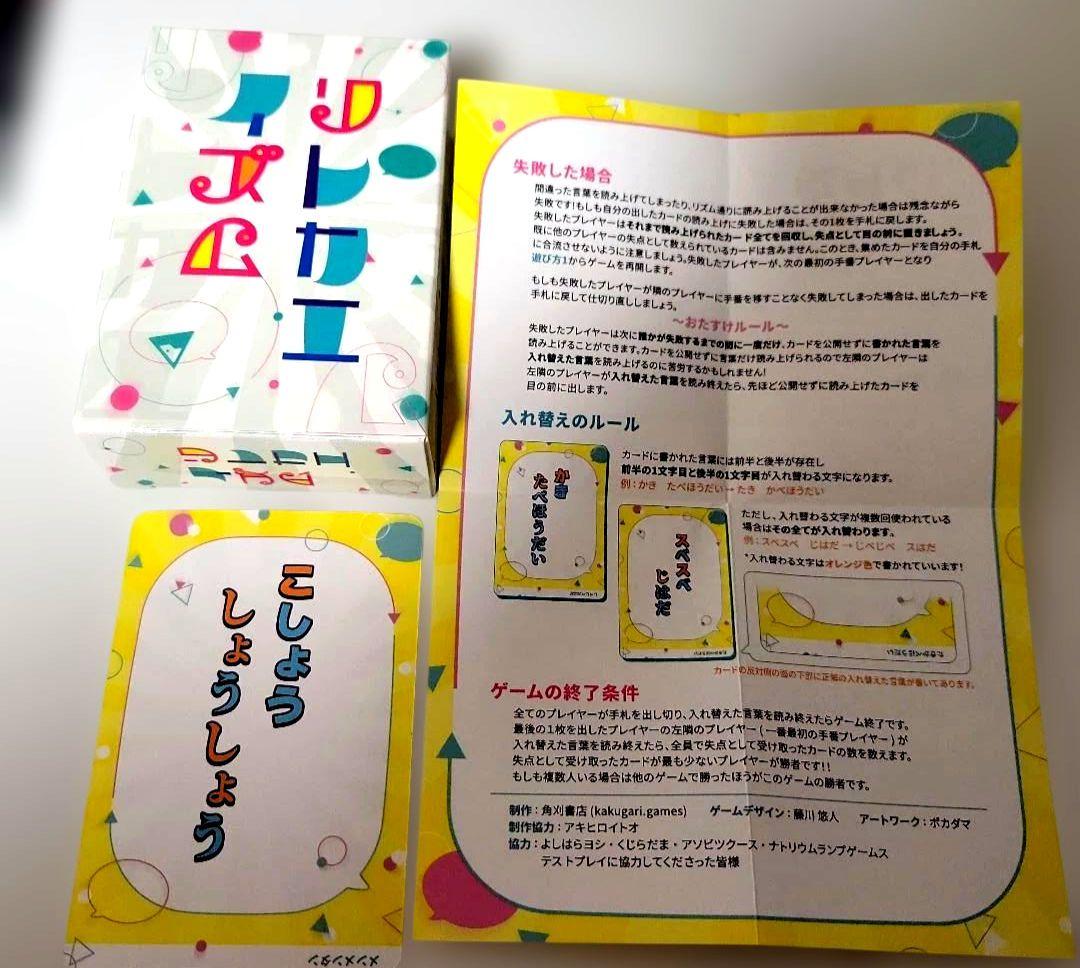 リレカエ
リズム
リレカエ
リズム
こしょう
しょうしょう
メンメンタン
失敗した場合
間違った言葉を読み上げてしまったり、リズム通りに読み上げることが出来なかった場合は残念ながら
失敗です!もしも自分の出したカードの読み上げに失敗した場合は、その1枚を手札に戻します。
失敗したプレイヤーはそれまで読み上げられたカード全てを回収し、失点として目の前に置きましょう。
既に他のプレイヤーの失点として数えられているカードは含みません。このとき、集めたカードを自分の手札
に合流させないように注意しましょう。失敗したプレイヤーが、次の最初の手番プレイヤーとなり
遊び方1からゲームを再開します。
もしも失敗したプレイヤーが隣のプレイヤーに手番を移すことなく失敗してしまった場合は、出したカードを
手札に戻して仕切り直ししましょう。
～おたすけルール～
失敗したプレイヤーは次に誰かが失敗するまでの間に一度だけ、カードを公開せずに書かれた言葉を
読み上げることができます。カードを公開せずに言葉だけ読み上げられるので左隣のプレイヤーは
入れ替えた言葉を読み上げるのに苦労するかもしれません!
左隣のプレイヤーが入れ替えた言葉を読み終えたら、先ほど公開せずに読み上げたカードを
目の前に出します。
入れ替えのルール
かき
たべほうだい
カードに書かれた言葉には前半と後半が存在し
前半の1文字目と後半の1文字目が入れ替わる文字になります。
例：かき　たべほうだい→たき　かべほうだい
スベスベ
じはだ
ただし、入れ替わる文字が複数回使われている
場合はその全てが入れ替わります。
例：スベスベ　じはだ→じべじべ　スはだ
*入れ替わる文字はオレンジ色で書かれていいます!
たきかべほうだい
カードの反対側の面の下部に正解の入れ替えた言葉が書いてあります。
ゲームの終了条件
全てのプレイヤーが手札を出し切り、入れ替えた言葉を読み終えたらゲーム終了です。
最後の1枚を出したプレイヤーの左隣のプレイヤー(一番最初の手番プレイヤー)が
入れ替えた言葉を読み終えたら、全員で失点として受け取ったカードの数を数えます。
失点として受け取ったカードが最も少ないプレイヤーが勝者です!!
もしも複数人いる場合は他のゲームで勝ったほうがこのゲームの勝者です。
制作：角刈書店(kakugari.games)　ゲームデザイン：藤川 悠人　アートワーク：ポカダマ
制作協力：アキヒロイトオ
協力：よしはらヨシ・くじらだま・アソビツクース・ナトリウムランプゲームス
テストプレイに協力してくださった皆様